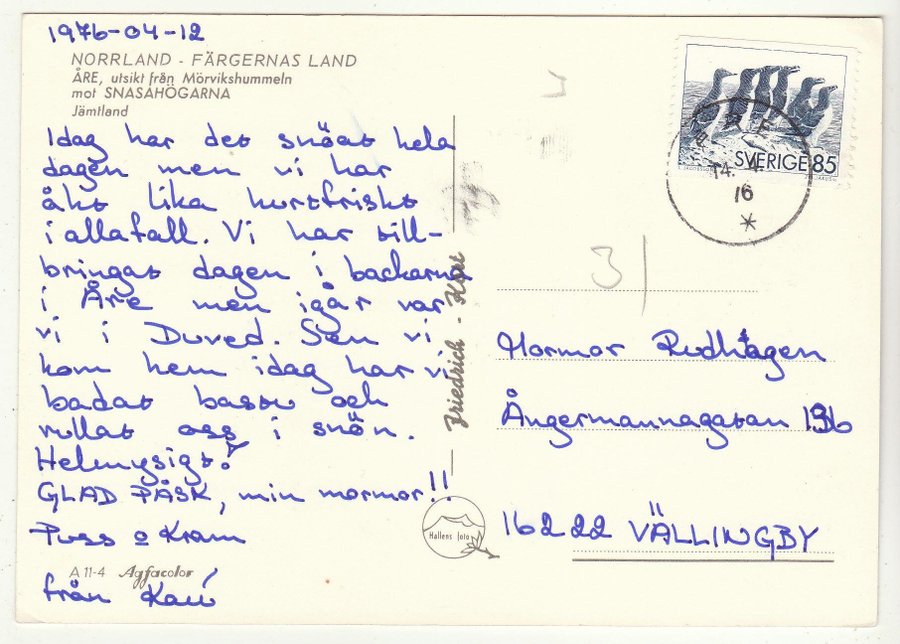 1976-04-12
NORRLAND - FÄRGERNAS LAND
ÅRE, utsikt från Mörvikshummeln
mot SNASAHÖGARNA
Jämtland
Idag har det snöat hela
dagen men vi har
åkt lika hurtfriskt
i allafall. Vi har till-
bringat dagen i backarna
i Åre men igår var
vi i Duved. Sen vi
kom hem idag har vi
badat bastu och
rullat oss i snön.
Helmysigt!
GLAD PÅSK, min mormor!!
Puss o Kram
från
A 11-4 Agfacolor
Friedrich - Kort
Hallens foto
SVERIGE 85
14. 4.
76
3
Mormor Rudhagen
Ångermannagatan
162 22 VÄLLINGBY